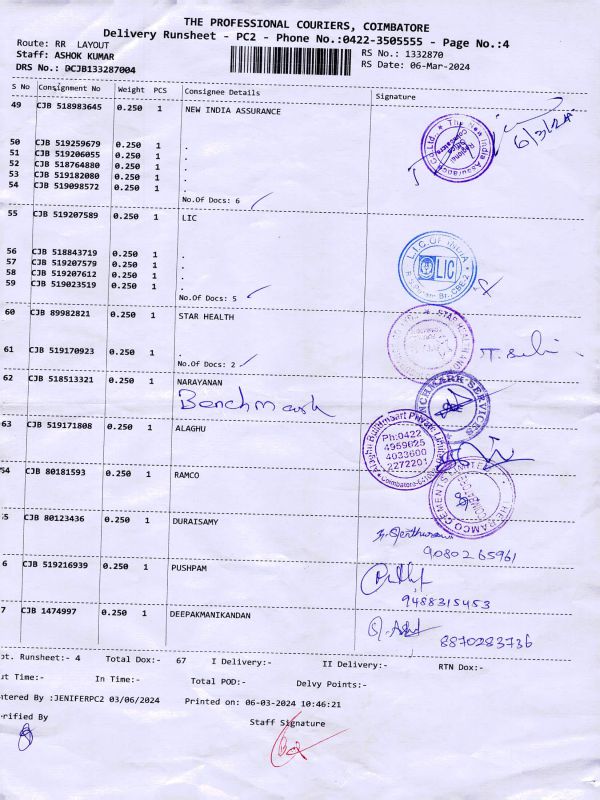 THE PROFESSIONAL COURIERS, COIMBATORE
Delivery Runsheet - PC2 - Phone No.:0422-3505555 - Page No.:4
Route: RR LAYOUT RS No.: 1332870
Staff: ASHOK KUMAR RS Date: 06-Mar-2024
DRS No.: DCJB133287004
S No Consignment No Weight PCS Consignee Details Signature
49 CJB 518983645 0.250 1 NEW INDIA ASSURANCE
6/3/24
The New India Assurance Co. Ltd.
50 CJB 519259679 0.250 1 .
51 CJB 519206055 0.250 1 .
52 CJB 518764880 0.250 1 .
53 CJB 519182080 0.250 1 .
54 CJB 519098572 0.250 1 .
No.Of Docs: 6
55 CJB 519207589 0.250 1 LIC
L.I.C OF INDIA
LIC
56 CJB 518843719 0.250 1 .
57 CJB 519207579 0.250 1 .
58 CJB 519207612 0.250 1 .
59 CJB 519023519 0.250 1 .
No.Of Docs: 5
60 CJB 89982821 0.250 1 STAR HEALTH
61 CJB 519170923 0.250 1 .
No.Of Docs: 2
62 CJB 518513321 0.250 1 NARAYANAN
Benchmark
BENCHMARK SERVICES
63 CJB 519171808 0.250 1 ALAGHU
Ph:0422
4959625
4033600
2272201
54 CJB 80181593 0.250 1 RAMCO
THE RAMCO CEMENTS LIMITED
5 CJB 80123436 0.250 1 DURAISAMY
9080265961
6 CJB 519216939 0.250 1 PUSHPAM
9488315453
7 CJB 1474997 0.250 1 DEEPAKMANIKANDAN
8870283736
ot. Runsheet:- 4 Total Dox:- 67 I Delivery:- II Delivery:- RTN Dox:-
ut Time:- In Time:- Total POD:- Delvy Points:-
ntered By :JENIFERPC2 03/06/2024 Printed on: 06-03-2024 10:46:21
erified By Staff Signature